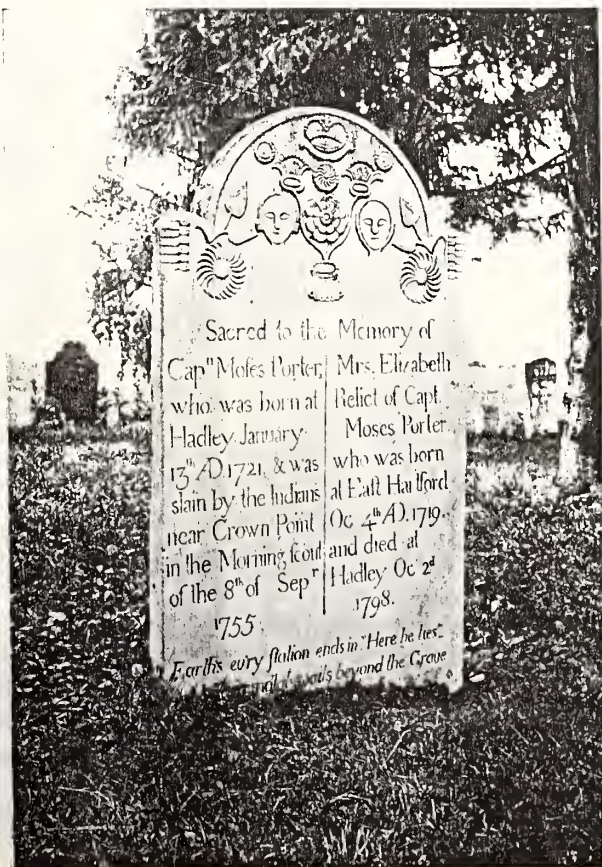 Sacred to the Memory of
Capⁿ Moſes Porter,
who was born at
Hadley January
13ᵗʰ AD. 1721, & was
slain by the Indians
near Crown Point
in the Morning ſcout
of the 8ᵗʰ of Sepʳ
1755.
Mrs. Elizabeth
Relict of Capt.
Moses Porter
who was born
at Eaſt Hartford
Oc 4ᵗʰ AD. 1719.
and died at
Hadley Oc 2ᵈ
1798.
Earth's ev'ry ſtation ends in "Here he lies"
beyond the Grave